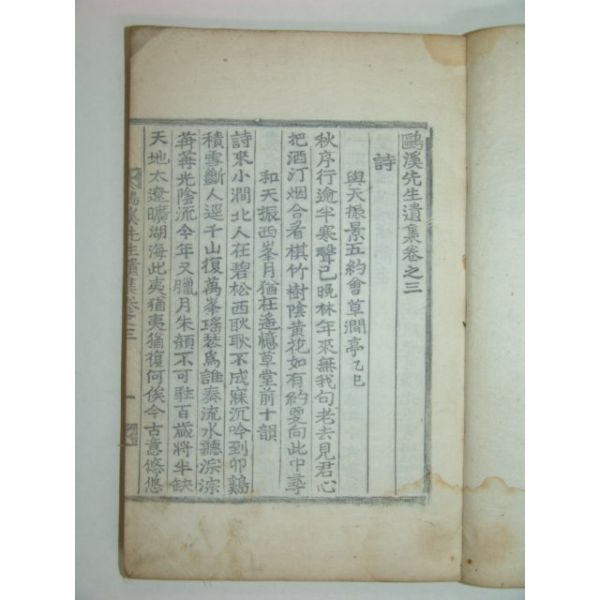 鷗溪先生遺集卷之三
詩
與天振景五約會草澗亭乙巳
秋序行逾半寒聲已晚林年來無我句老去見君心
把酒汀烟合看棋竹樹陰黃花如有約要向此中尋
和天振西峯月猶在遙憶草堂前十韻
詩來小澗北人在碧松西耿耿不成寐沉吟到卯鷄
積雪斷人逕千山復萬峯瑤琴爲誰奏流水聽淙淙
苒苒光陰流今年又臘月朱顔不可駐百歲將半缺
天地太遼曠湖海此夷猶夷猶復何俟今古意悠悠
鷗溪先生遺集卷之三 一